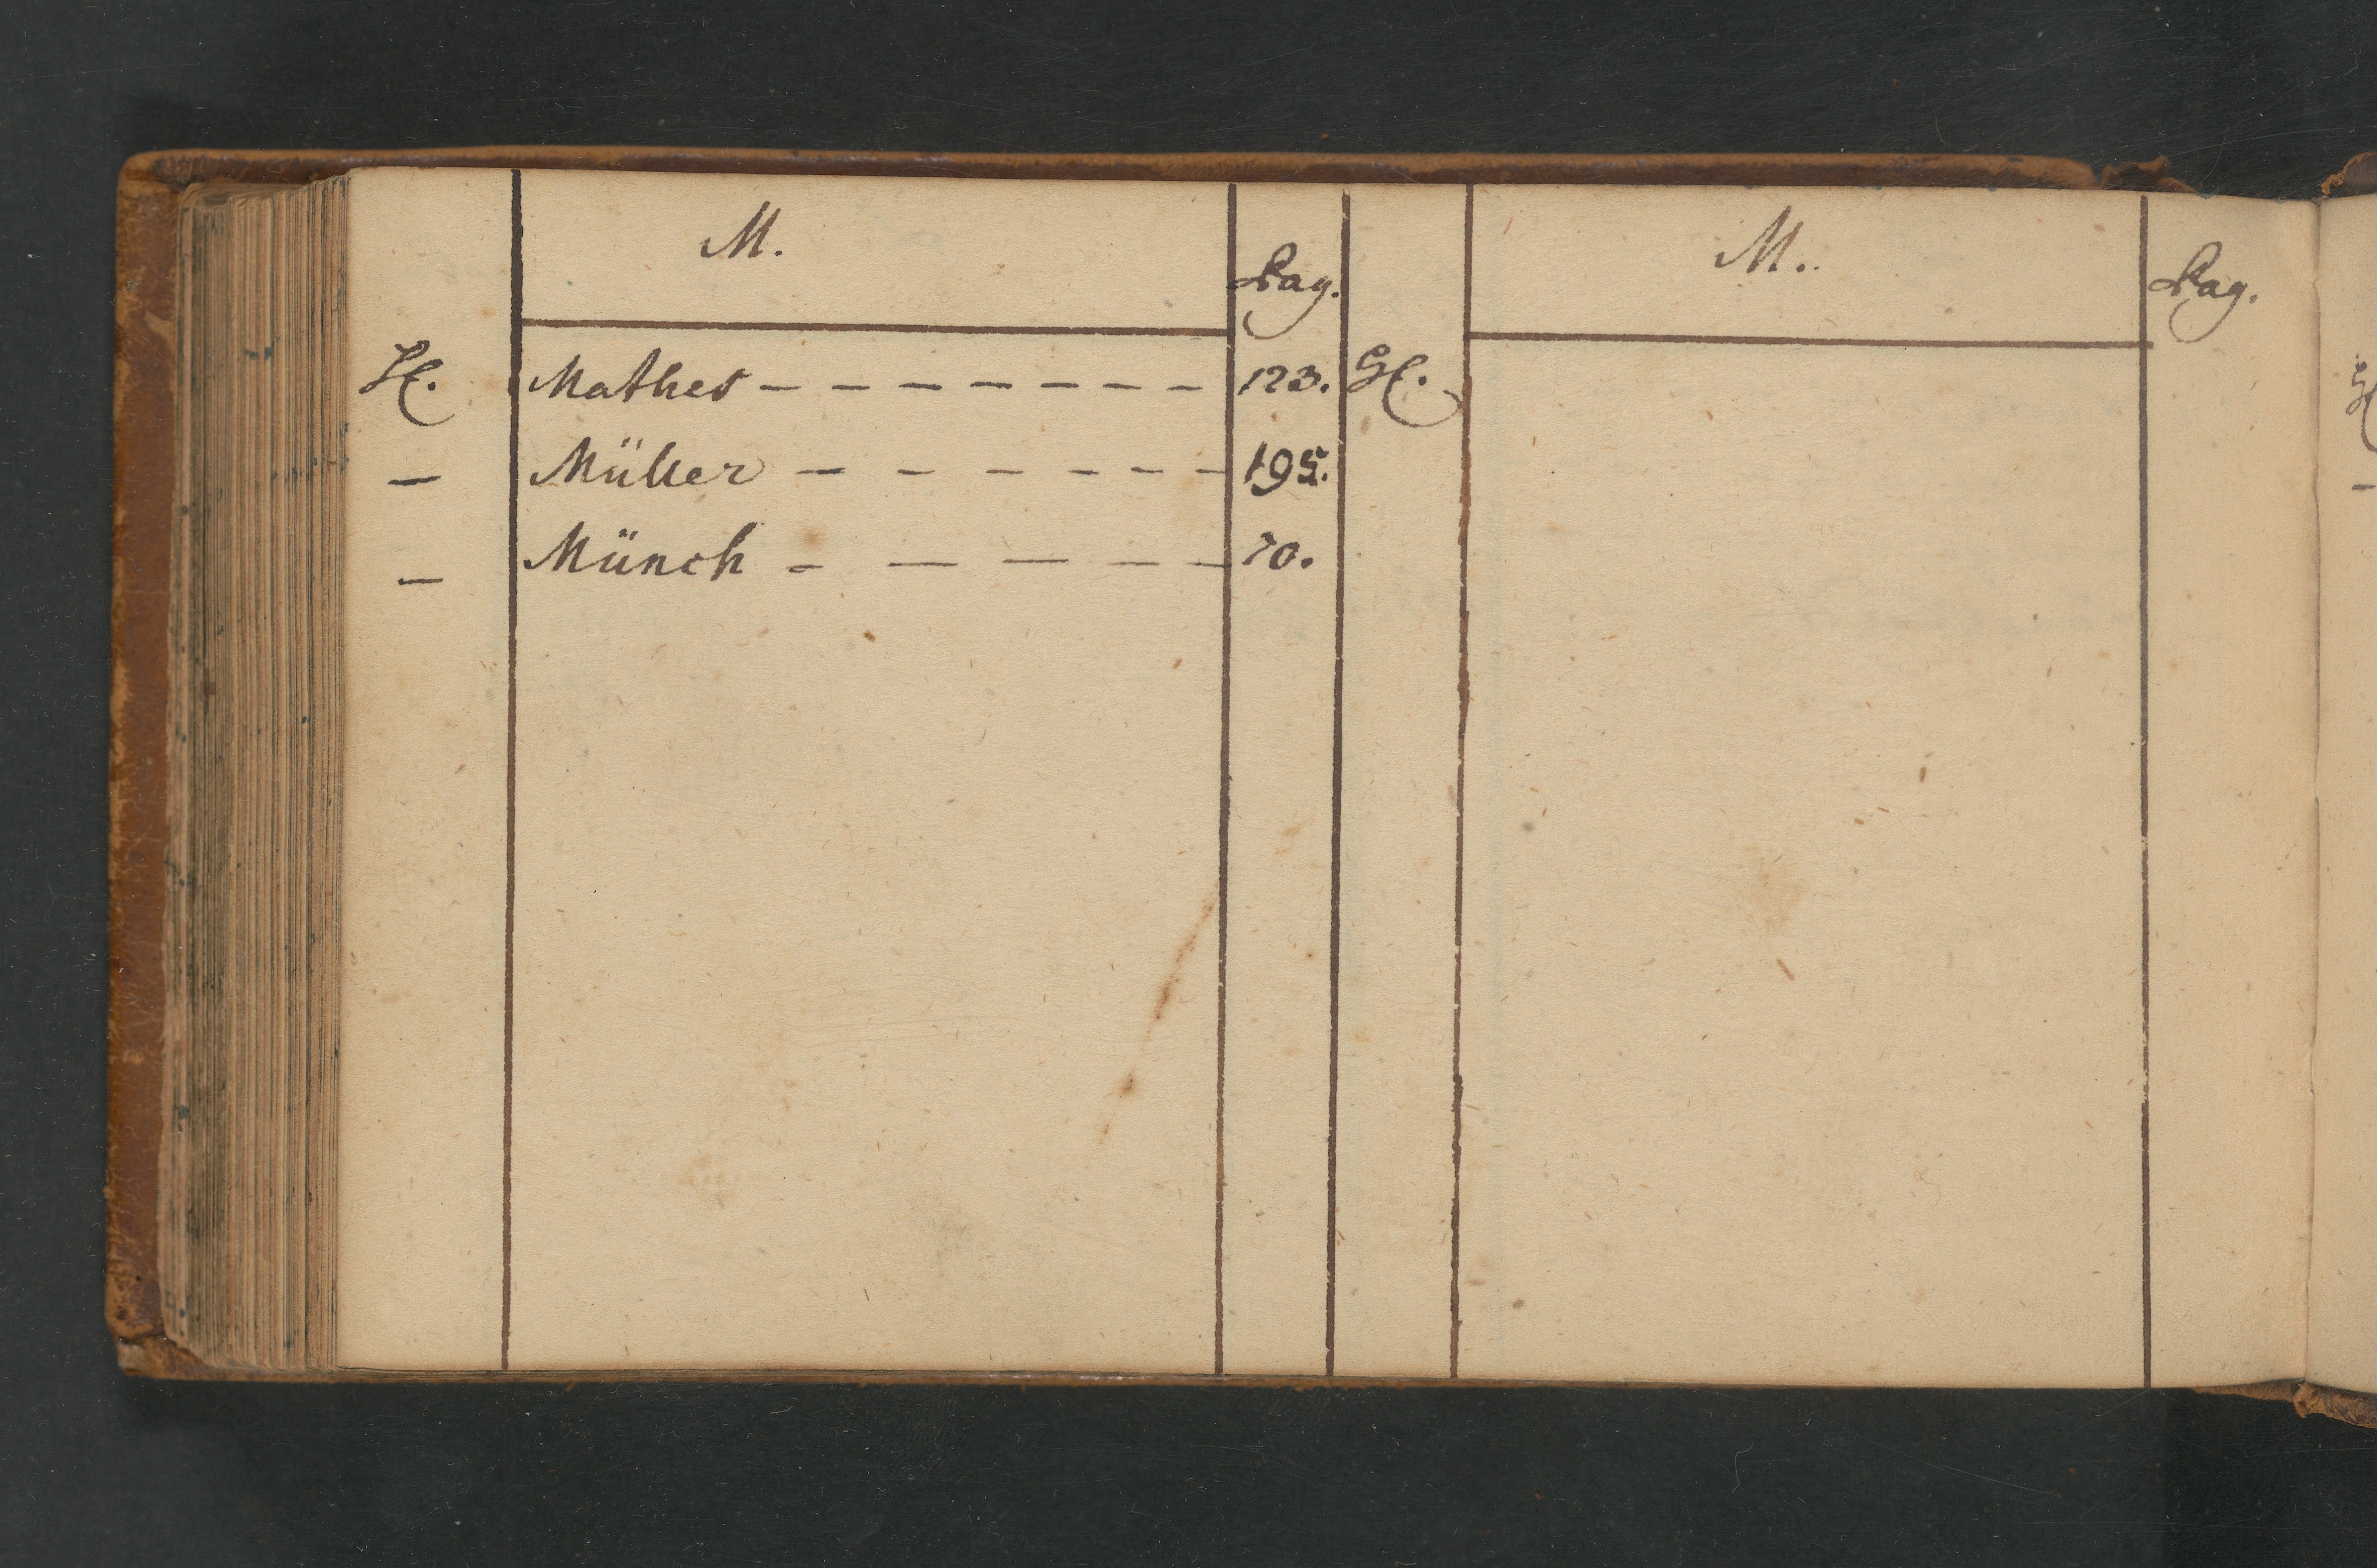 M.
Pag.
H. Mathes - - - - - - - 123.
- Müller - - - - - - 195.
- Münch - - - - - 70.
M.
Pag.
H.